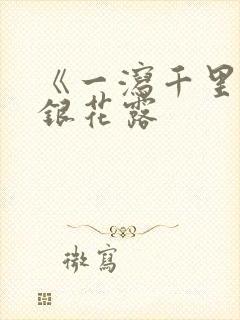 《一瀉千里
銀花露
微寫